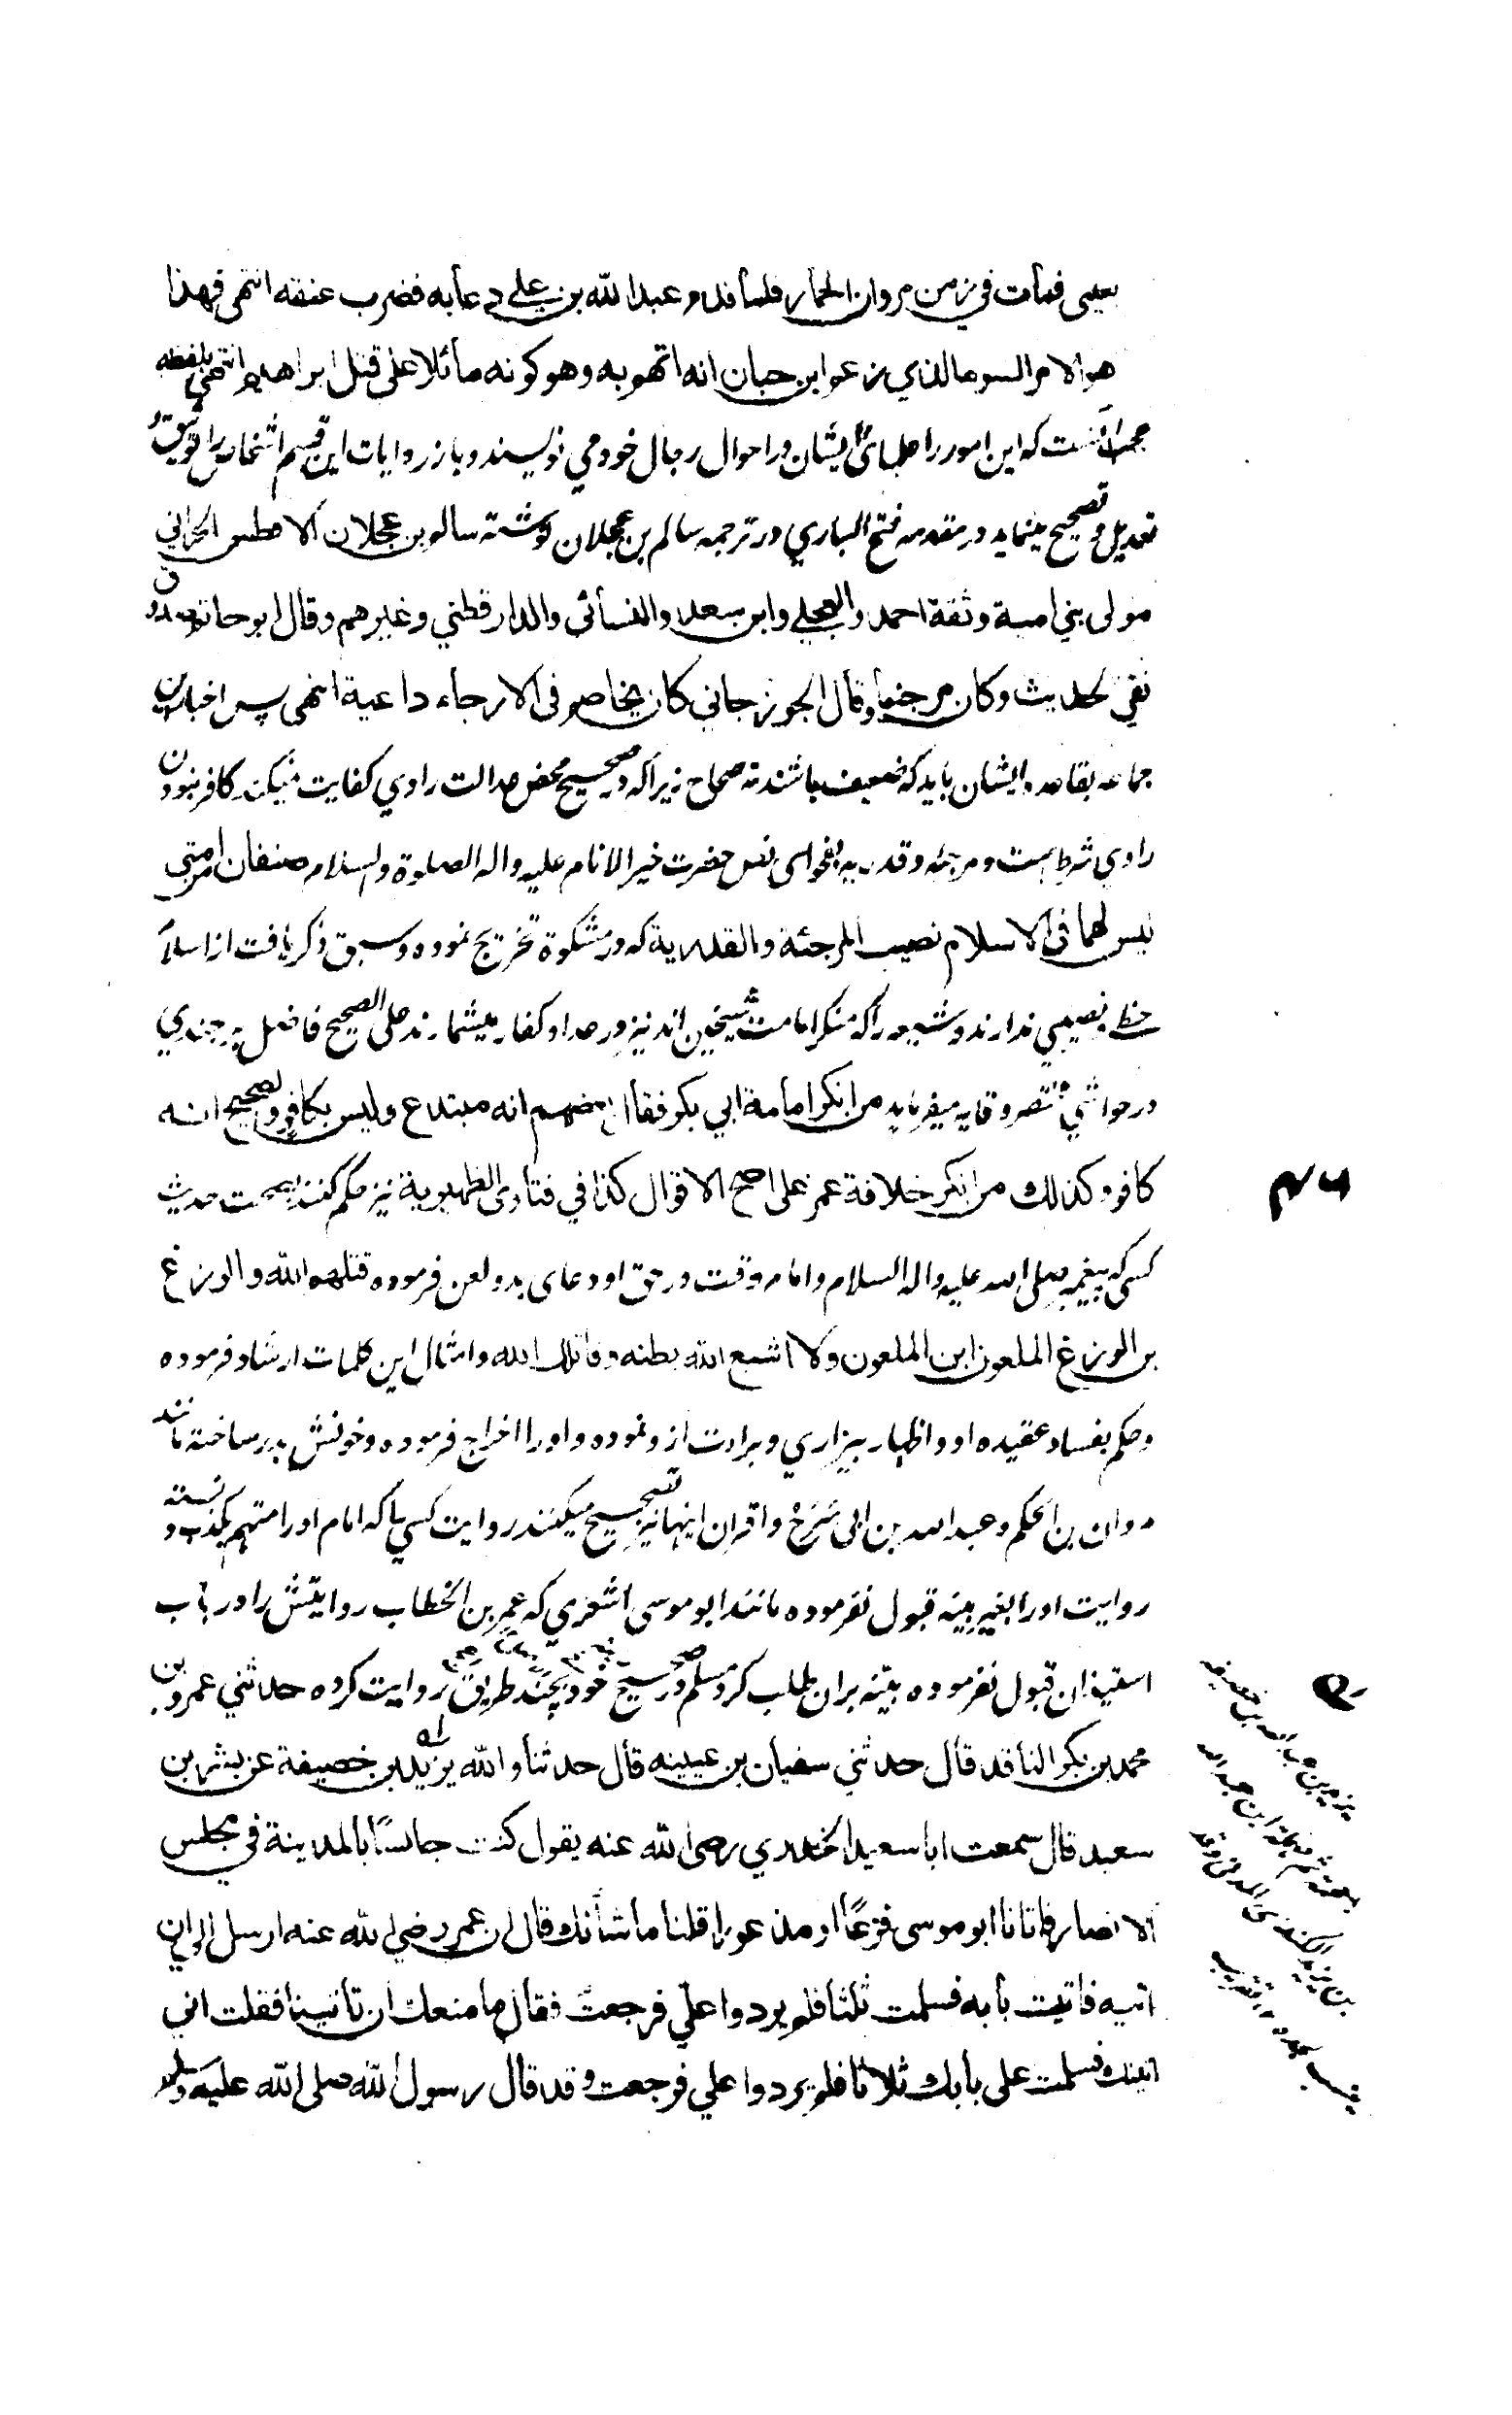 یعنی فمات في زمن مروان الحمار فلما قدم عبد الله بن علي دعا به فضرب عنقه انتهى فهذا
هو الامر السوء الذي زعم ابن حبان انه اتهم به وهو كونه مائلا على قتل ابراهيم انتهى بلفظه
عجب آنست که این امور را علمای ایشان در احوال رجال خود می نویسند و باز روایات این قسم اشخاص را توثیق و
تعدیل و تصحیح مینماید در مقدمه فتح الباري در ترجمه سالم بن عجلان نوشته سالم بن عجلان الافطس الحراني
مولى بني امية وثقه احمد والعجلي وابن سعد والنسائى والدارقطني وغيرهم وقال ابو حاتم صدوق
نقي الحديث وكان مرجئا وقال الجوزجاني كان يخاصم فى الارجاء داعية انتهى پس اخبار این
جماعه بقاعده ایشان باید که ضعیف باشند نه صحاح زیرا که در صحیح محض عدالت راوي کفایت نمیکند کافر نبودن
راوي شرط است و مرجئه و قدریه بفحوای نص حضرت خیر الانام علیه واله الصلوة والسلام صنفان من امتي
ليس لهما فى الاسلام نصيب المرجئة والقدرية که در مشکوة تخریج نموده و سبق ذکر یافت از اسلام
حظی و نصیبي ندارند و شیعه را که منکر امامت شیخین اند نیز در عداد کفار میشمارند على الصحیح فاضل برجندي
در حواشي مختصر وقایه میفرماید من انكر امامة ابي بكر فقال بعضهم انه مبتدع وليس بكافر والصحيح انه
كافر وكذلك من انكر خلافة عمر على اصح الاقوال كذا في فتاوى الظهيرية نیز حکم کنند بصحت حدیث
کسی که پیغمبر صلی الله علیه واله السلام و امام وقت در حق او دعای بد و لعن فرموده قتلهم الله والوزغ
بن الوزغ الملعون ابن الملعون ولا اشبع الله بطنه وقاتلك الله و امثال این کلمات ارشاد فرموده
و حکم بفساد عقیده او و اظهار بیزاري و برائت ازو نموده و او را اخراج فرموده و خونش هدر ساخته مانند
مروان بن الحکم و عبد الله بن ابی سَرَحْ و اقران اینها نیز تصحیح میکنند روایت کسي را که امام او را متهم بکذب دانسته و
روایت او را بغیر بینه قبول نفرموده مانند ابو موسی اشعري که عمر بن الخطاب روایتش را در باب
استیذان قبول نفرموده بینه بران طلب کرد مسلم در صحیح خود بچند طریق روایت کرده حدثني عمرو بن
محمد بن بكر الناقد قال حدثني سفيان بن عيينه قال حدثنا والله يزيد بن خصيفة عن بشر بن
سعيد قال سمعت ابا سعيد الخدري رضى الله عنه يقول كنت جالسًا بالمدينة في مجلس
الانصار فاتانا ابو موسى فزعًا او مذعورا قلنا ما شأنك قال ان عمر رضي الله عنه ارسل الي ان
اتيه فاتيت بابه فسلمت ثلثا فلم يردوا عليّ فرجعت فقال ما منعك ان تأتينا فقلت اني
اتيتك فسلمت على بابك ثلاثا فلم يردوا علي فرجعت وقد قال رسول الله صلى الله عليه وسلم